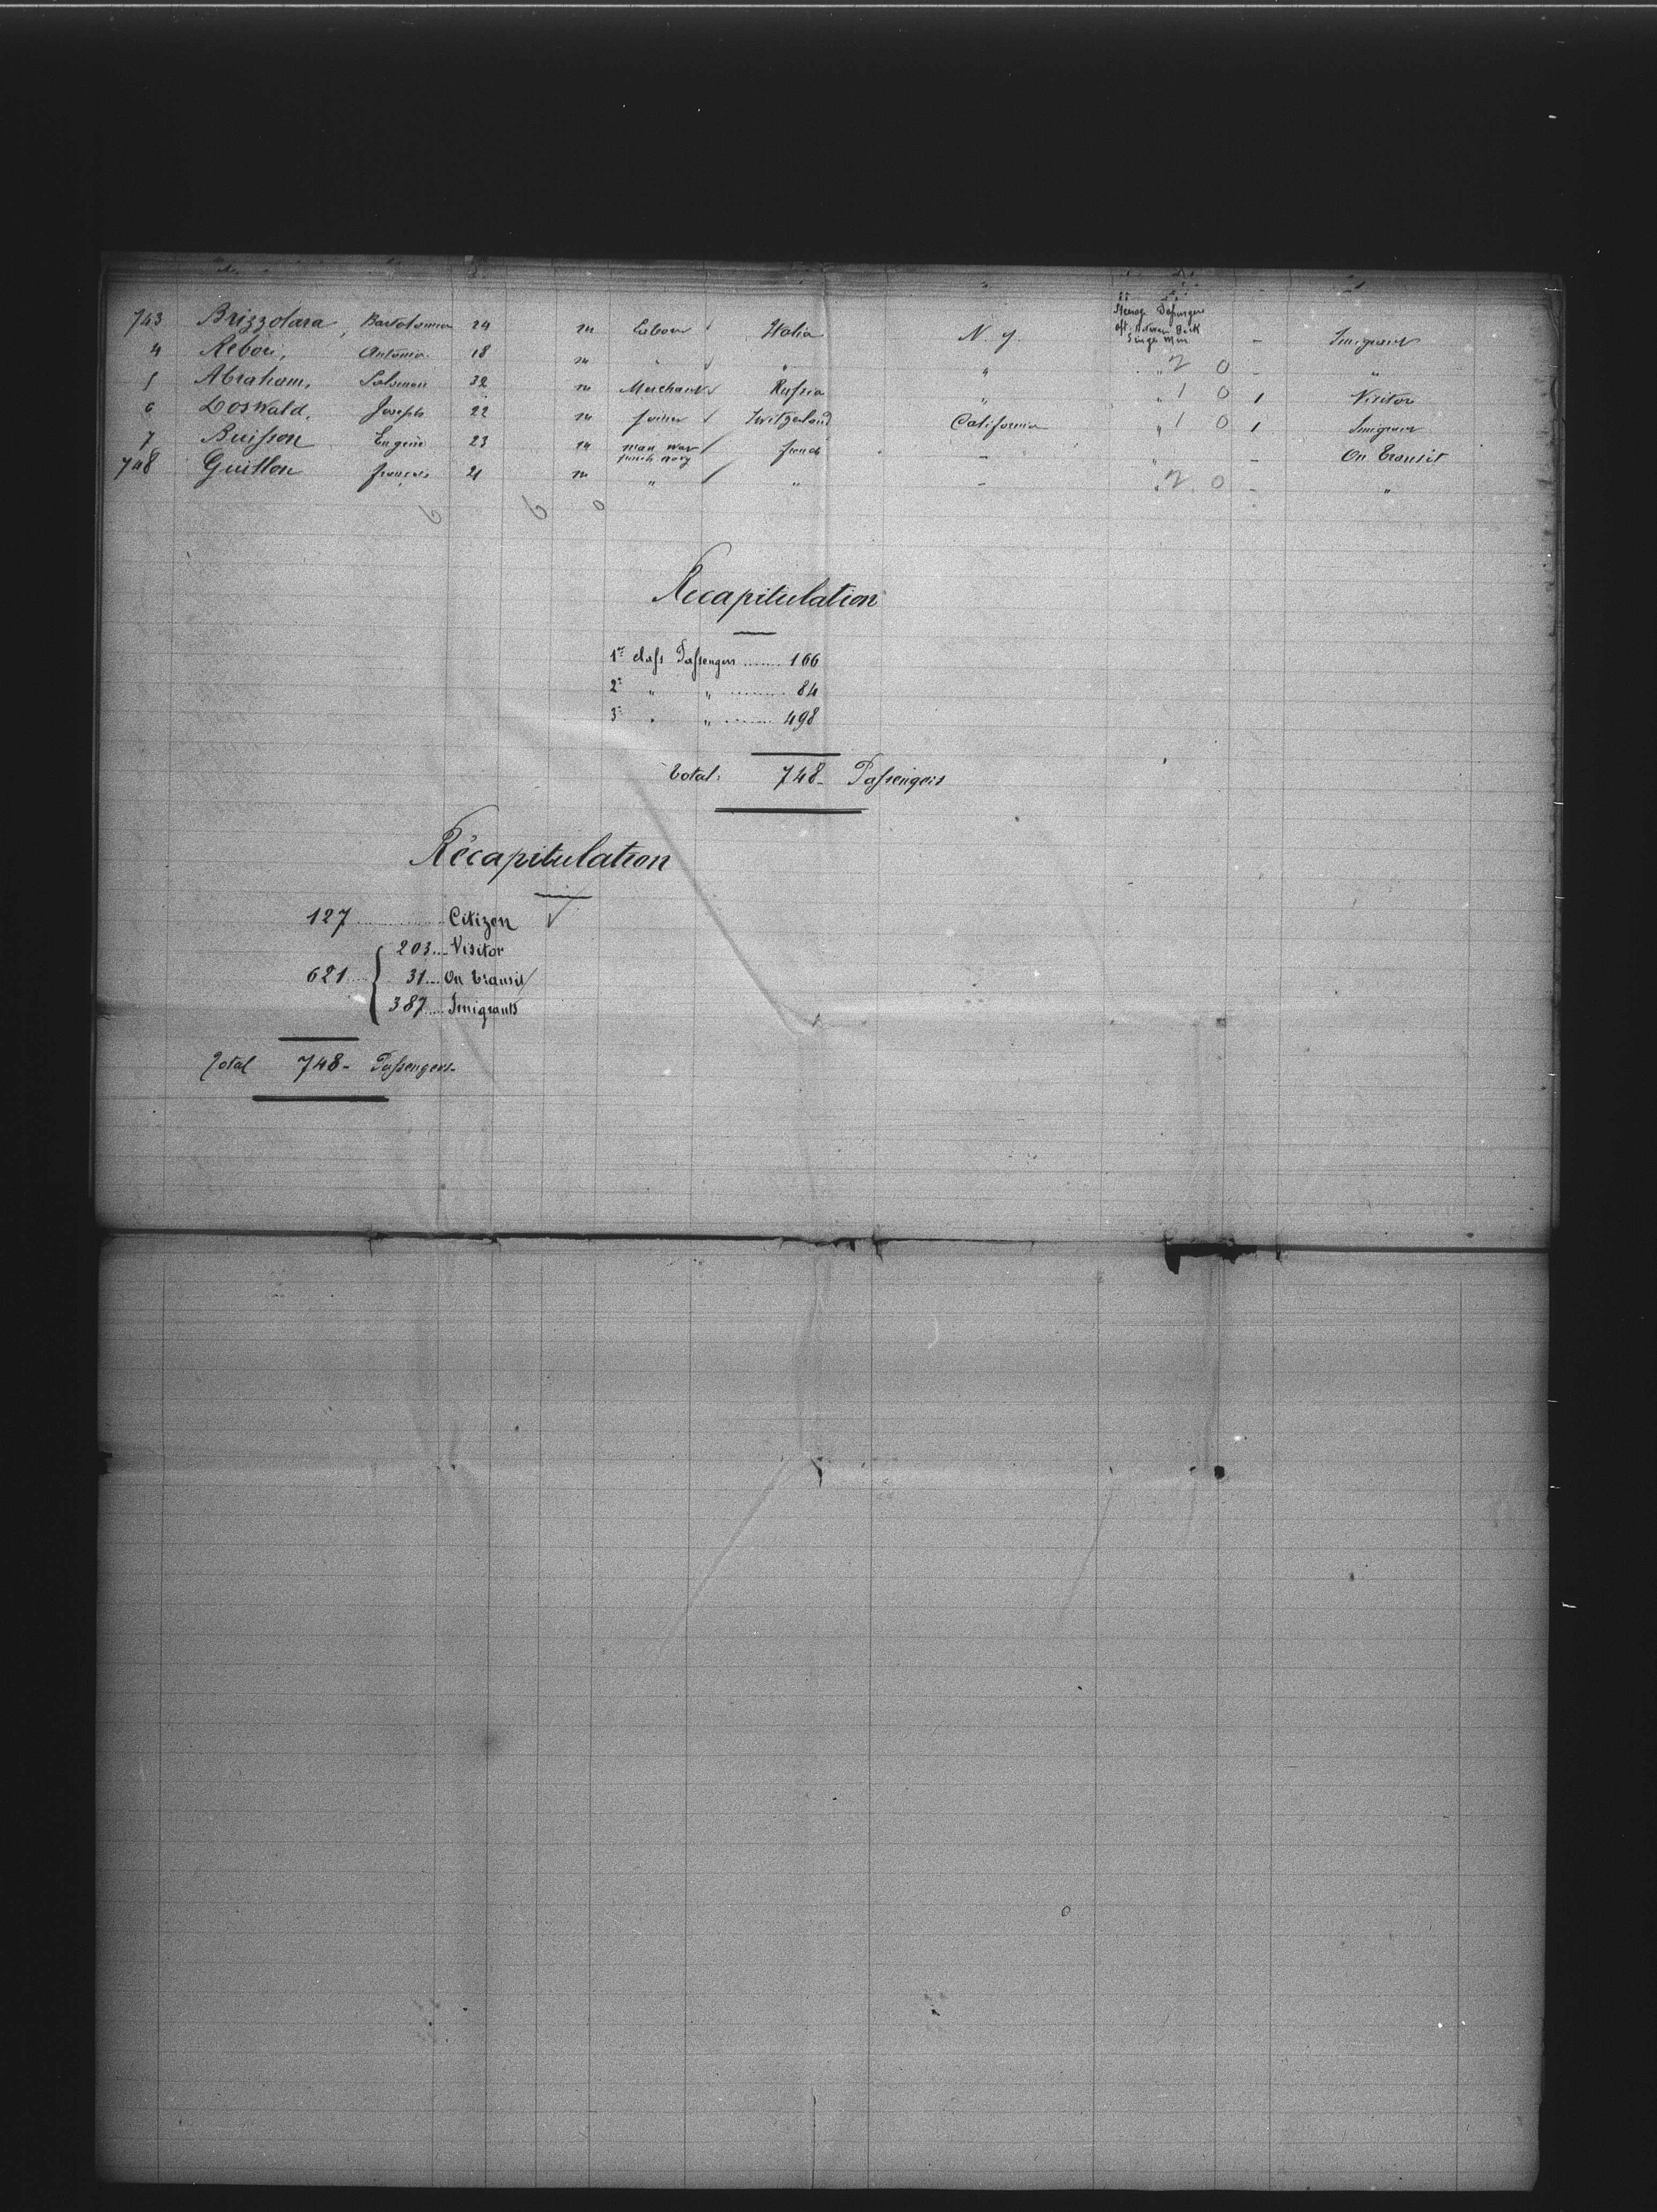 Steerage Passengers
aft. between Deck
Single Men
743 Brizzolara, Bartolomeo 24 m Labour Italia N. Y. - Imigrant
4 Rebori, Antonio 18 m " " " " 2 0 - "
5 Abraham, Salomon 32 m Merchant Russia " " 1 0 1 Visitor
6 Doswald, Joseph 22 m Joiner Switzerland California " 1 0 1 Imigrant
7 Buisson Eugene 23 m man war french navy french - " - On transit
748 Guillou françois 21 m " " - " 2 0 - "
6 6 0
Recapitulation
1re class Passengers ........ 166
2e " " ........ 84
3e " " ........ 498
Total: 748 - Passengers
Récapitulation
127 ........ Citizen √
203 ... Visitor
621 ... { 31 ... On transit /
387 ... Imigrants
Total 748 - Passengers -